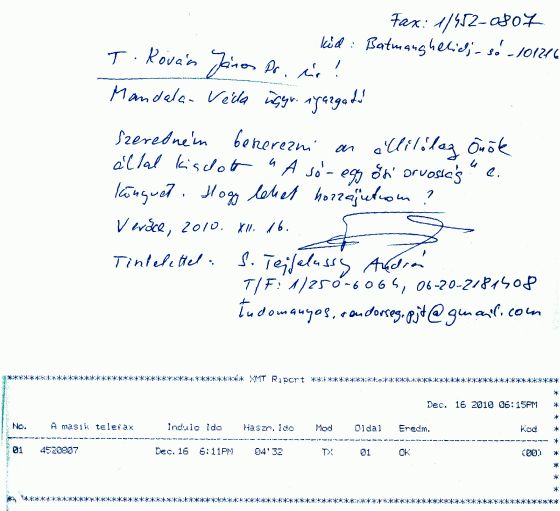 Fax: 1/452-0807
kód: Batmanghelidj-só-101216
T. Kováts János Dr. úr!
Mandala-Véda ügyv. igazgató
Szeretném beszerezni az állítólag Önök
által kiadott "A só-egy ősi orvosság" c.
könyvet. Hogy lehet hozzájutnom?
Verőce, 2010. XII. 16.
Tisztelettel: S. Tejfalussy András
T/F: 1/250-6064, 06-20-2181408
tudomanyos.rendorseg.pjt@gmail.com
XMT Riport
Dec. 16 2010 06:15PM
No. A masik telefax Indulo Ido Haszn.Ido Mod Oldal Eredm. Kod
01 4520807 Dec.16 6:11PM 04'32 TX 01 OK (00)